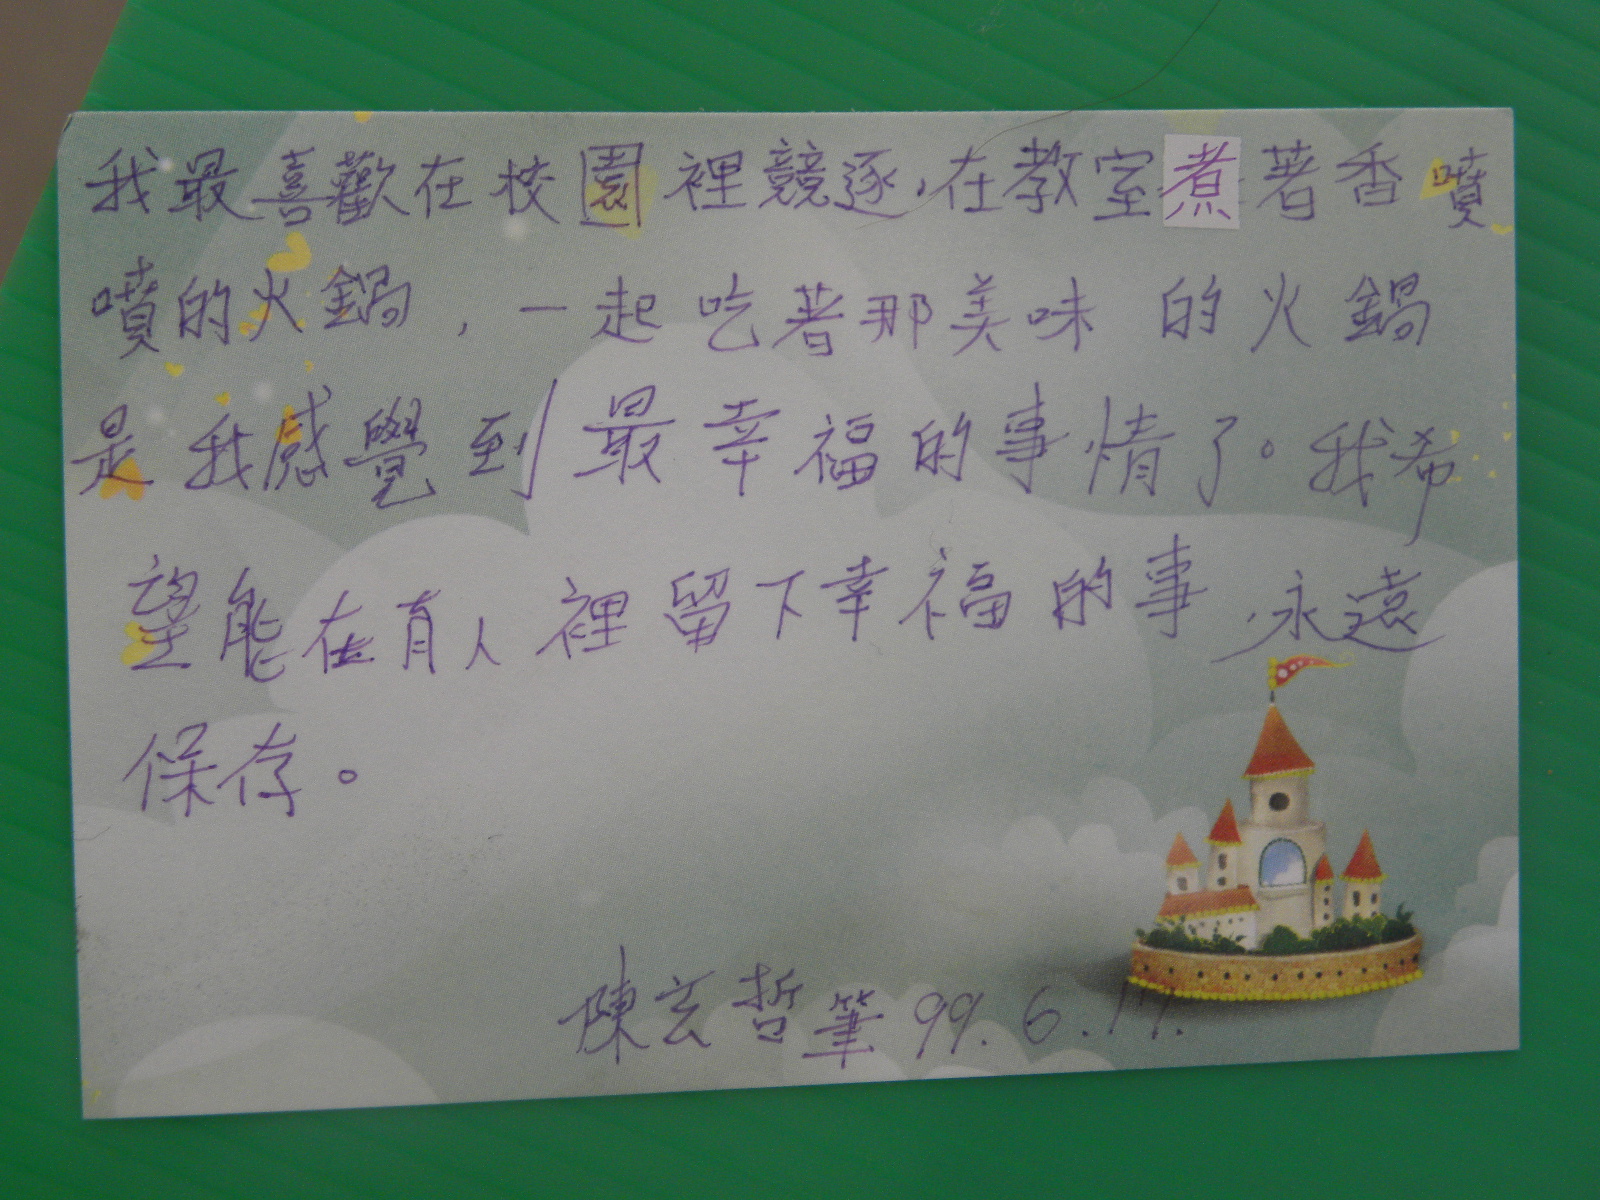 我最喜歡在校園裡競逐,在教室煮著香噴
噴的火鍋,一起吃著那美味的火鍋
是我感覺到最幸福的事情了。我希
望能在有人裡留下幸福的事,永遠
保存。
陳玄哲筆 99.6.11.